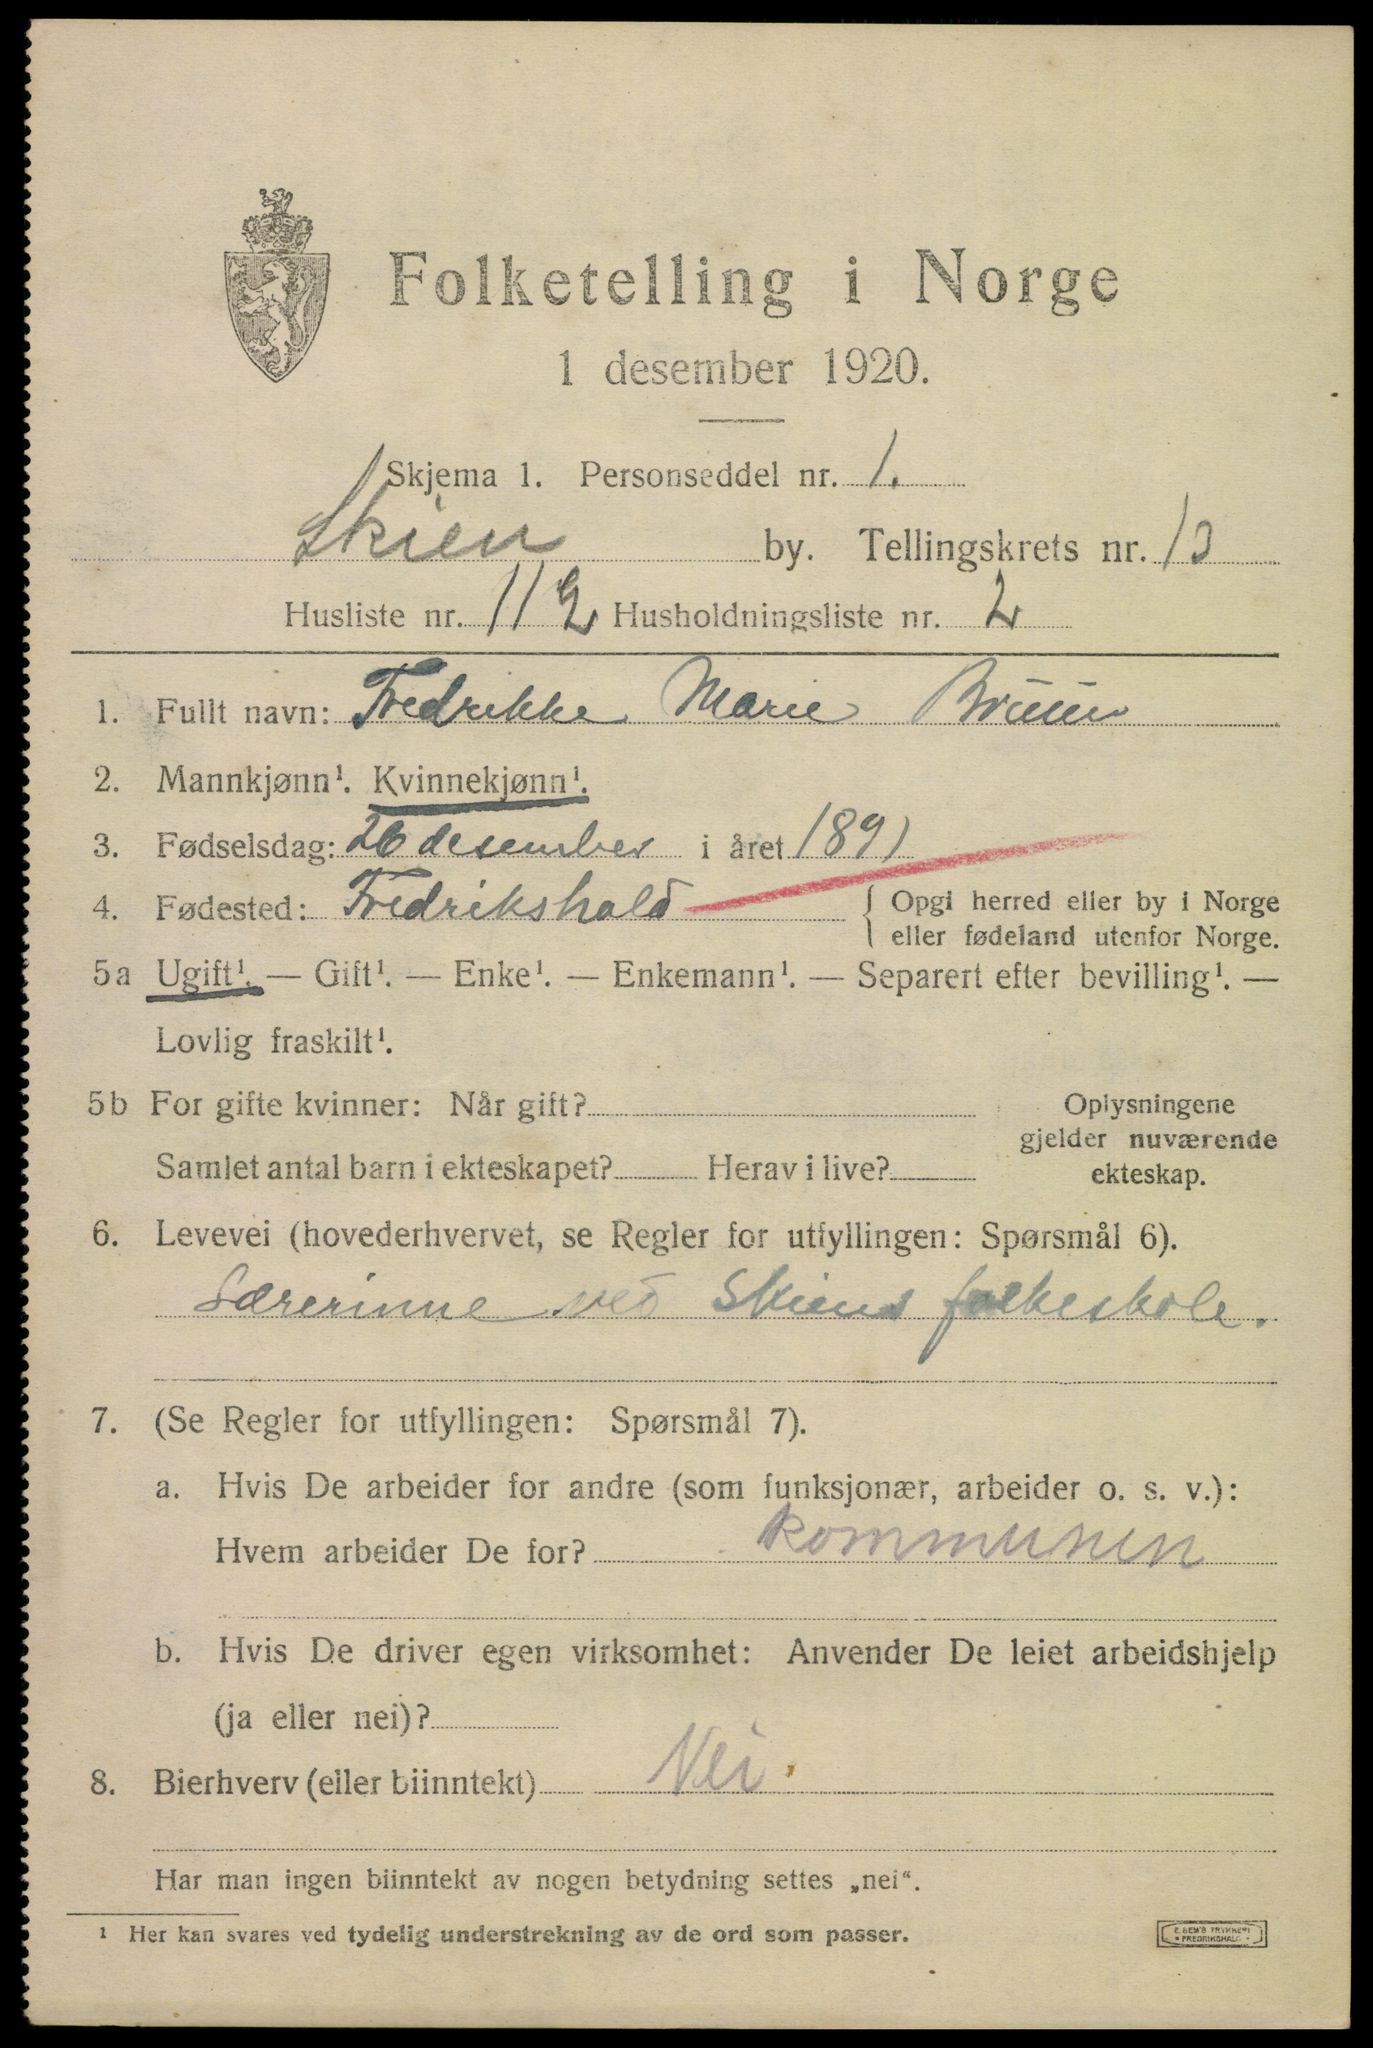 Folketelling i Norge
1 desember 1920.
Skjema 1. Personseddel nr. 1.
Skien by. Tellingskrets nr. 13
Husliste nr. 112 Husholdningsliste nr. 2
1. Fullt navn: Fredrikke Marie Bruun
2. Mannkjønn¹. Kvinnekjønn¹.
3. Fødselsdag: 26 desember i året 1891
4. Fødested: Fredrikshald { Opgi herred eller by i Norge
eller fødeland utenfor Norge.
5a Ugift¹. — Gift¹. — Enke¹. — Enkemann¹. — Separert efter bevilling¹. —
Lovlig fraskilt¹.
5b For gifte kvinner: Når gift? Oplysningene
gjelder nuværende
Samlet antal barn i ekteskapet? Herav i live? ekteskap.
6. Levevei (hovederhvervet, se Regler for utfyllingen: Spørsmål 6).
Lærerinne ved Skiens folkeskole.
7. (Se Regler for utfyllingen: Spørsmål 7).
a. Hvis De arbeider for andre (som funksjonær, arbeider o. s. v.):
Hvem arbeider De for? kommunen
b. Hvis De driver egen virksomhet: Anvender De leiet arbeidshjelp
(ja eller nei)?
8. Bierhverv (eller biinntekt) Nei.
Har man ingen biinntekt av nogen betydning settes „nei“.
¹ Her kan svares ved tydelig understrekning av de ord som passer.
E. SEM'S TRYKKERI
FREDRIKSHALD